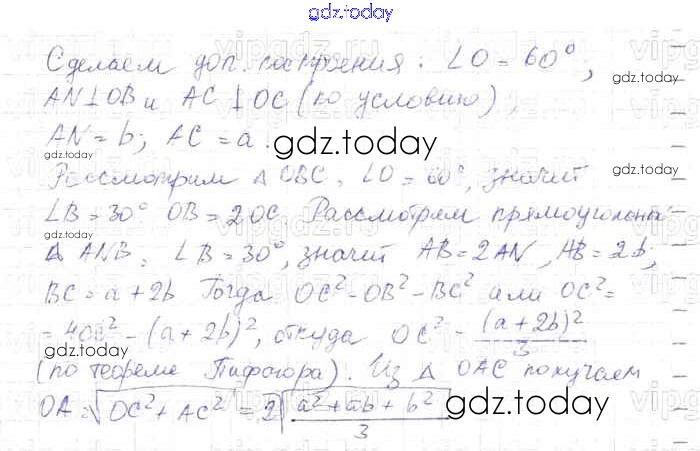 gdz.today
Сделаем доп. построения: ∠O = 60°;
gdz.today
AN⊥OB и AC⊥OC (по условию),
gdz.today
AN = b; AC = a.
gdz.today
Рассмотрим △ОВС, ∠O = 60°, значит
∠B = 30° OB = 2OC. Рассмотрим прямоугольн.
gdz.today
gdz.today
△ ANB: ∠B = 30°, значит AB = 2AN, AB = 2b;
BC = a + 2b Тогда OC² = OB² - BC² или OC² =
= 4OC² - (a + 2b)², откуда OC² = (a + 2b)² / 3
gdz.today
(по теореме Пифагора). Из △ OAC получаем
OA = √OC² + AC² = 2√a² + ab + b² / 3
gdz.today